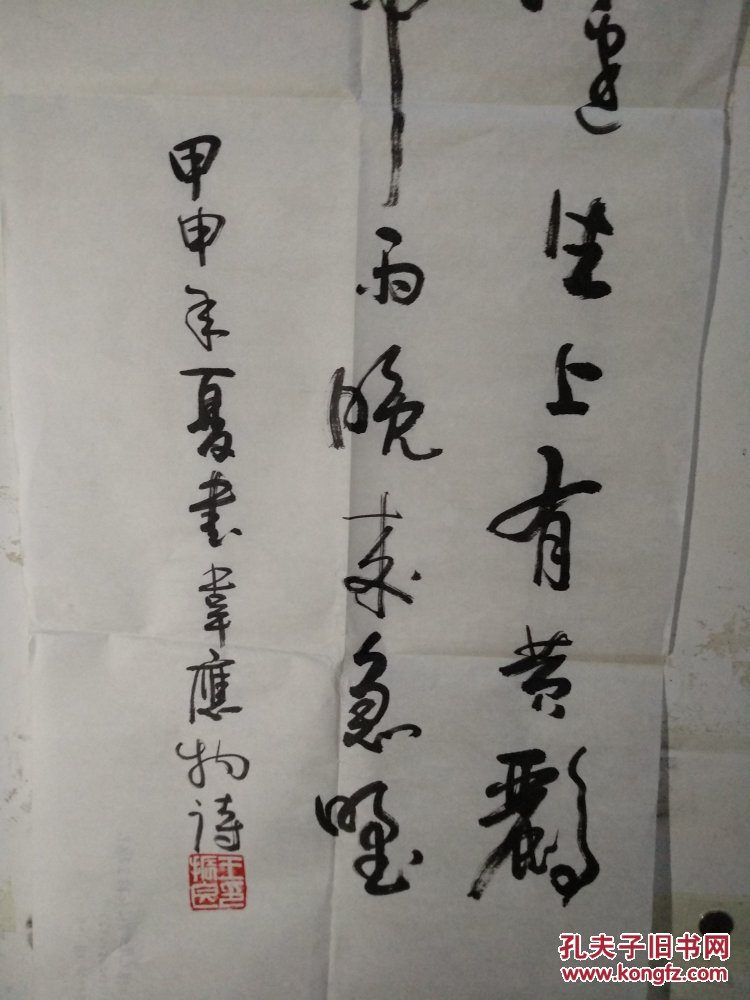 邊生上有黄鸝
雨晚来急野
甲申年夏書韋應物诗
孔夫子旧书网
www.kongfz.com